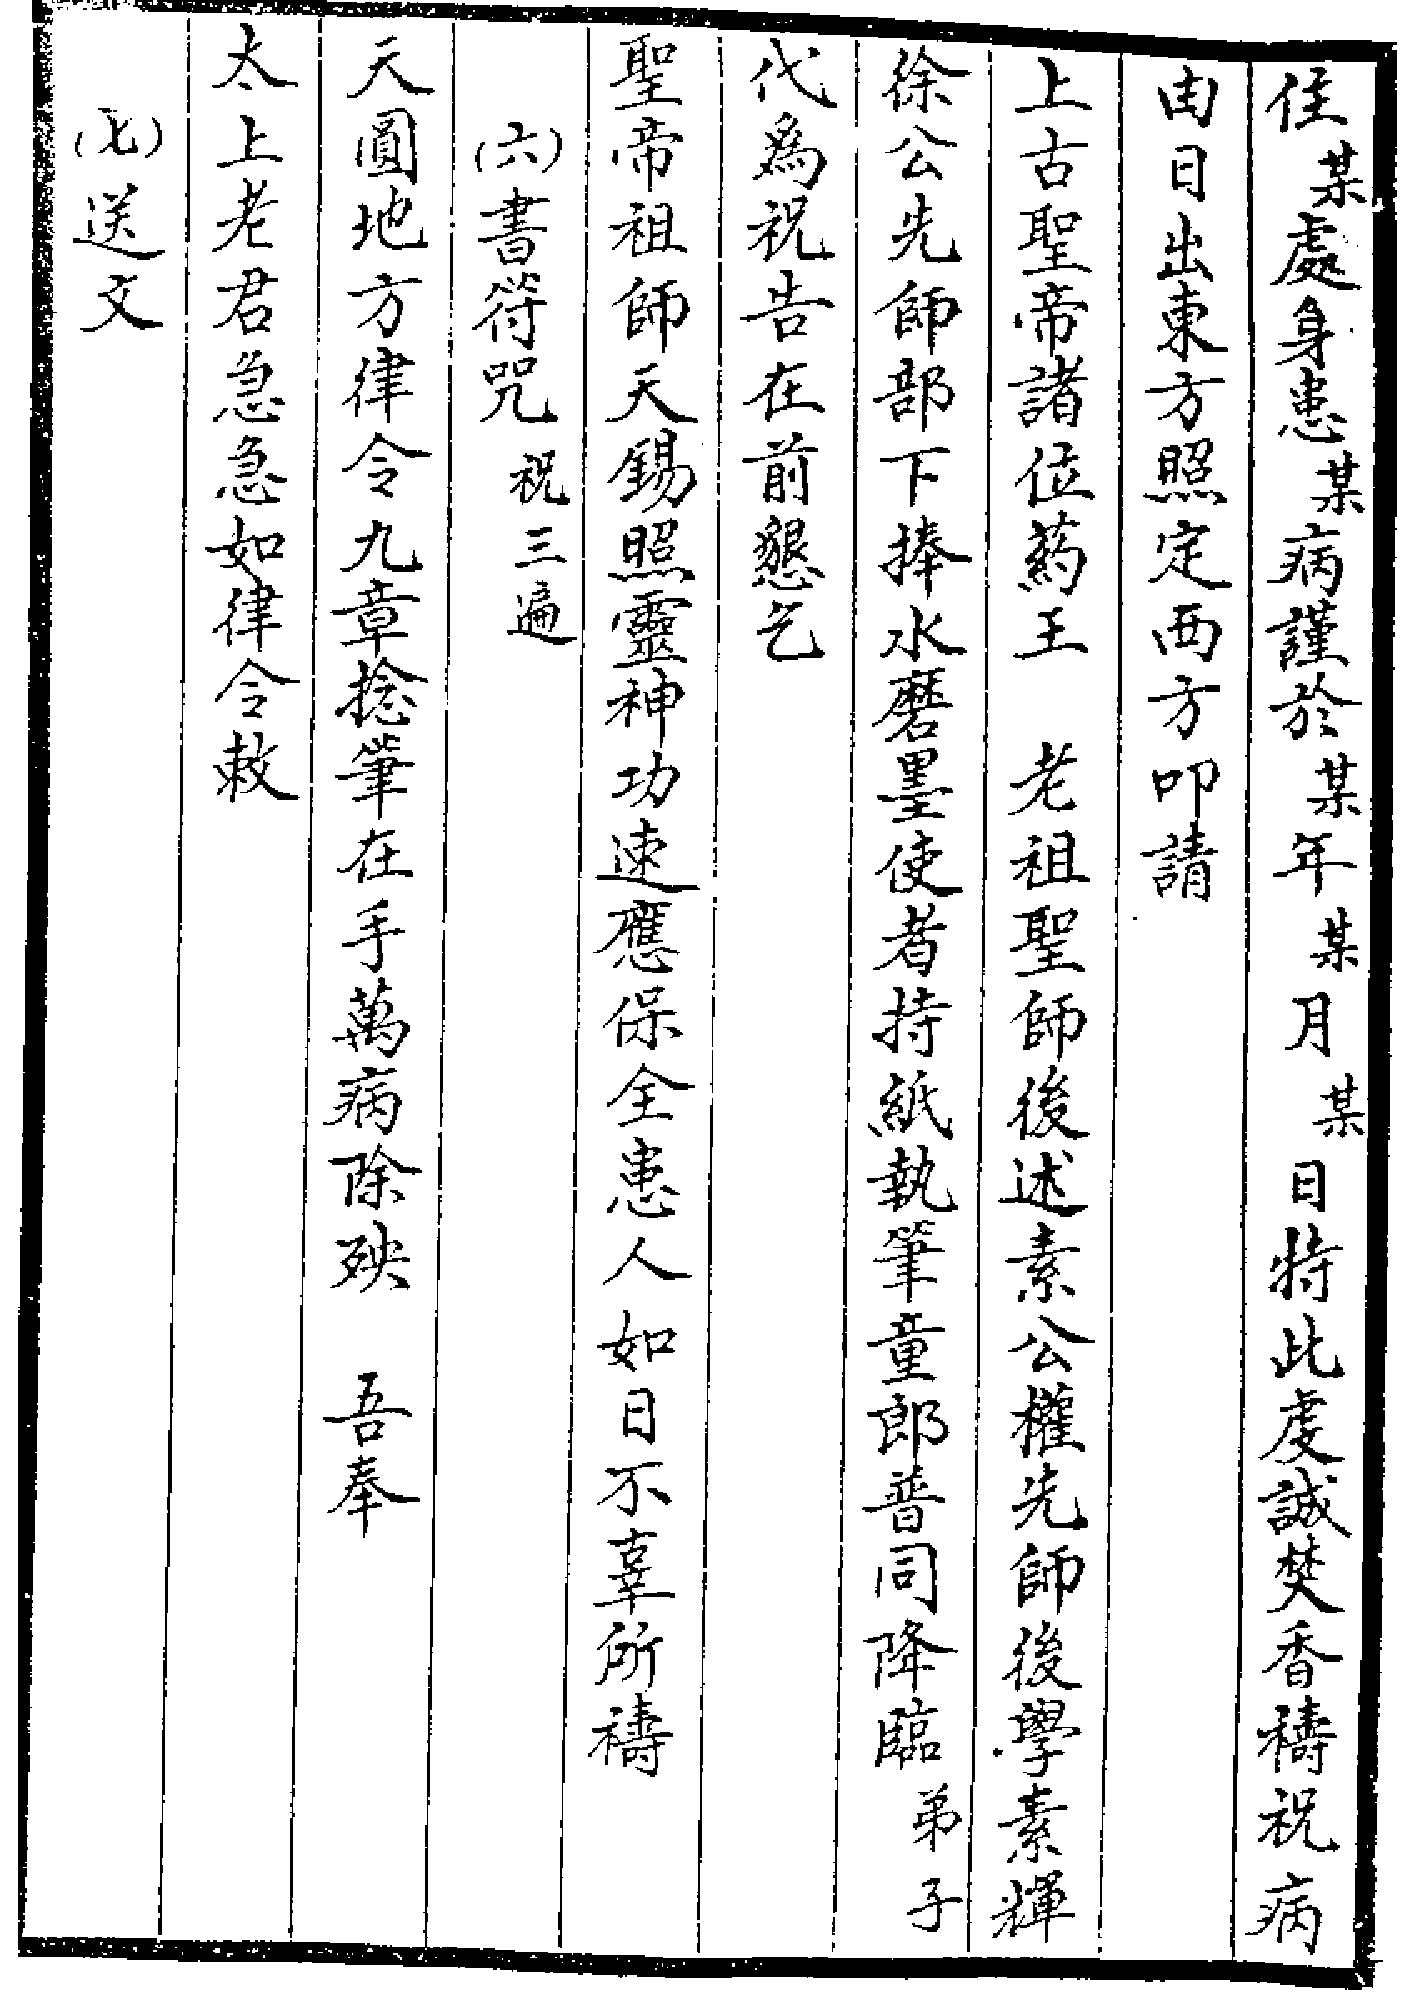 住某處身患某病謹於某年某月某日特此虔誠焚香禱祝病
由日出東方照定西方叩請
上古聖帝諸位葯王　老祖聖師後述素公權先師後學素輝
徐公先師部下捧水磨墨使者持紙執筆童郎普同降臨弟子
代為祝告在前懇乞
聖帝祖師天錫照靈神功速應保全患人如日不辜所禱
(六)書符咒祝三遍
天圓地方律令九章捻筆在手萬病除殃　吾奉
太上老君急急如律令敕
(七)送文